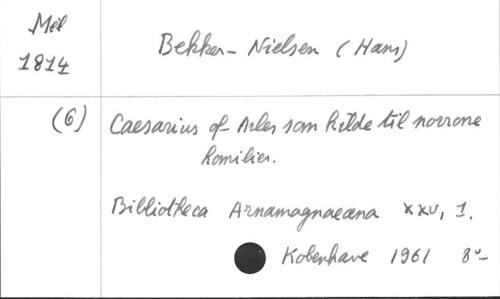 Mél
1814
Bekker-Nielsen (Hans)
(6)
Caesarius of Arles som kilde til norrone
homilier.
Bibliotheca Arnamagnaeana XXV, 1.
Kobenhave 1961 8°-